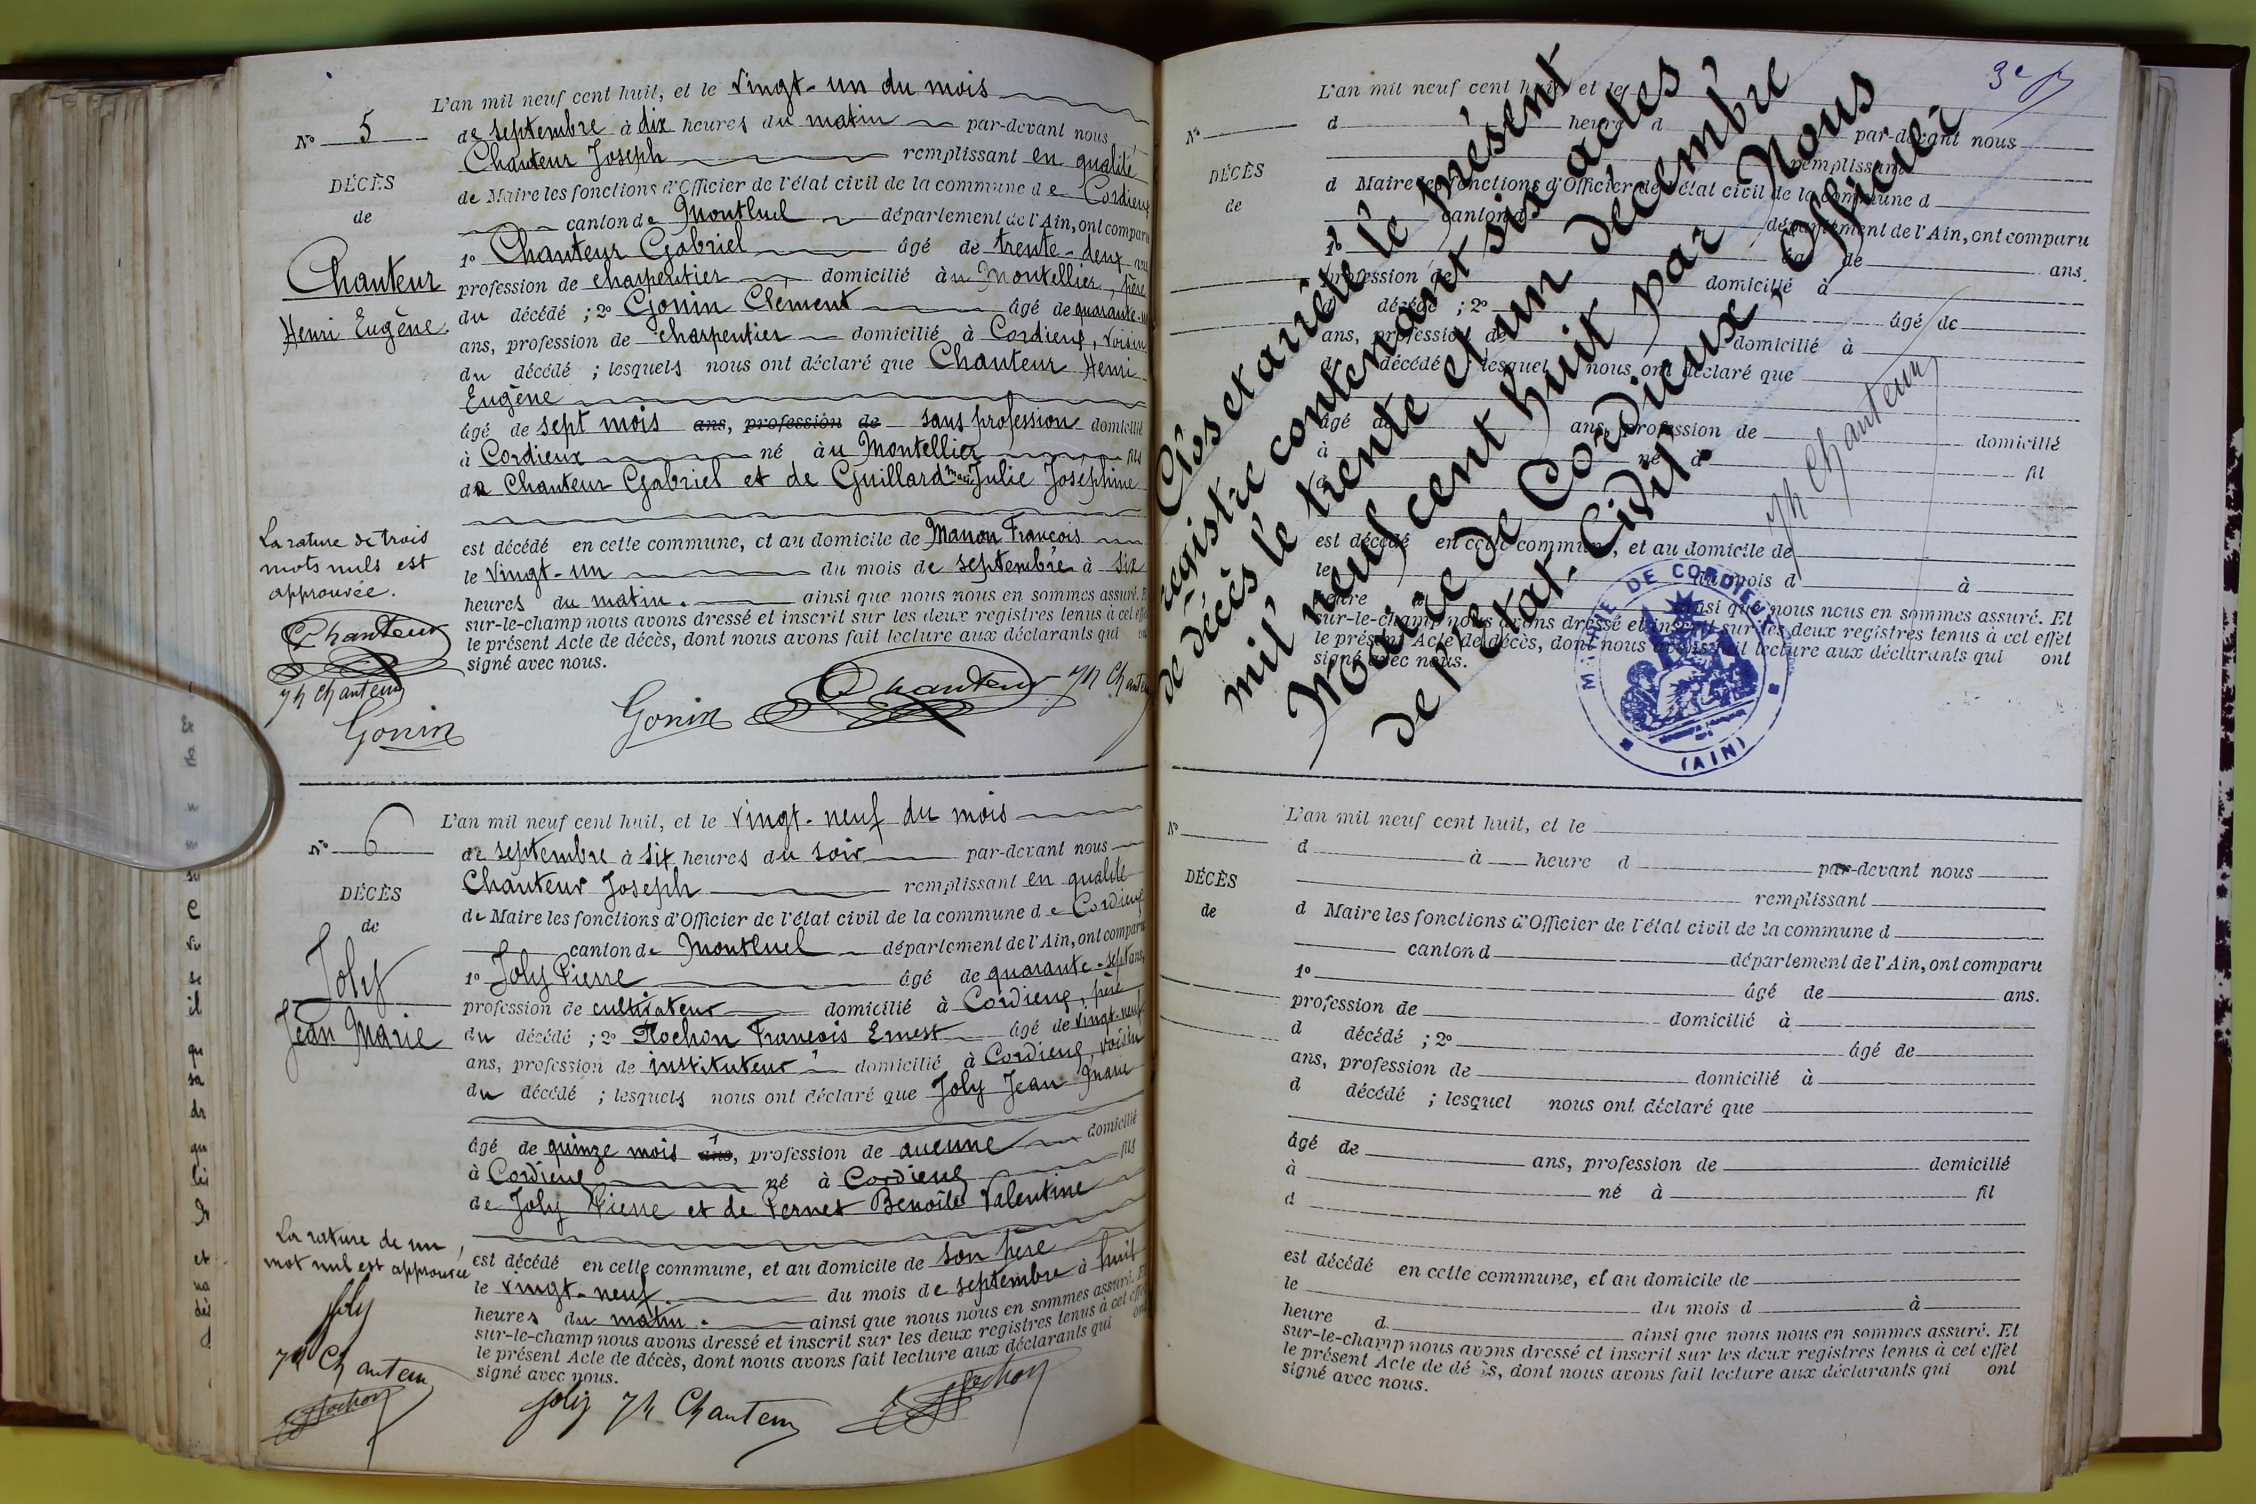 L'an mil neuf cent huit, et le vingt-un du mois
No 5
de septembre à dix heures du matin par-devant nous
Chanteur Joseph remplissant en qualité
DÉCÈS
de Maire les fonctions d'Officier de l'état civil de la commune de Cordieux
de
canton de Montluel département de l'Ain, ont comparu
1o Chanteur Gabriel âgé de trente-deux ans
Chanteur
profession de charpentier domicilié au Montellier, père
Henri Eugène.
du décédé ; 2o Gonin Clément âgé de quarante-un
ans, profession de charpentier domicilié à Cordieux, voisin
du décédé ; lesquels nous ont déclaré que Chanteur Henri
Eugène
âgé de sept mois ans, profession de sans profession domicilié
à Cordieux né au Montellier fils
de Chanteur Gabriel et de Guillard Marie Julie Joséphine
La rature de trois
mots nuls est
approuvée.
est décédé en cette commune, et au domicile de Manon François
le vingt-un du mois de septembre à six
heures du matin. ainsi que nous nous en sommes assuré. Et
sur-le-champ nous avons dressé et inscrit sur les deux registres tenus à cet effet
le présent Acte de décès, dont nous avons fait lecture aux déclarants qui ont
signé avec nous.
Chanteur
Jh Chanteur
Gonin
Gonin Chanteur Jh Chanteur
L'an mil neuf cent huit, et le vingt-neuf du mois
No 6
de septembre à six heures du soir par-devant nous
Chanteur Joseph remplissant en qualité
DÉCÈS
de Maire les fonctions d'Officier de l'état civil de la commune de Cordieux
de
canton de Montluel département de l'Ain, ont comparu
Joly
1o Joly Pierre âgé de quarante-sept ans,
profession de cultivateur domicilié à Cordieux, père
Jean Marie
du décédé ; 2o Rochon François Ernest âgé de vingt-neuf
ans, profession de instituteur domicilié à Cordieux, voisin
du décédé ; lesquels nous ont déclaré que Joly Jean Marie
âgé de quinze mois ans, profession de aucune domicilié
à Cordieux né à Cordieux fils
de Joly Pierre et de Pernet Benoîte Valentine
La rature de un
mot nul est approuvée
est décédé en cette commune, et au domicile de son père
le vingt-neuf du mois de septembre à huit
heures du matin. ainsi que nous nous en sommes assuré. Et
sur-le-champ nous avons dressé et inscrit sur les deux registres tenus à cet effet
le présent Acte de décès, dont nous avons fait lecture aux déclarants qui ont
signé avec nous.
Joly
Jh Chanteur
Rochon
Joly Jh Chanteur Rochon
3e
L'an mil neuf cent huit, et le
No
d heure d par-devant nous
remplissant
DÉCÈS
d Maire les fonctions d'Officier de l'état civil de la commune d
de
canton d département de l'Ain, ont comparu
1o âgé de ans.
profession de domicilié à
d décédé ; 2o âgé de
ans, profession de domicilié à
d décédé ; lesquel nous ont déclaré que
âgé de ans, profession de domicilié
à né à fil
d
est décédé en cette commune, et au domicile de
le du mois d à
heure d ainsi que nous nous en sommes assuré. Et
sur-le-champ nous avons dressé et inscrit sur les deux registres tenus à cet effet
le présent Acte de décès, dont nous avons fait lecture aux déclarants qui ont
signé avec nous.
Clos et arrêté le présent
registre contenant six actes
de décès le trente et un décembre
mil neuf cent huit par Nous
Maire de Cordieux, Officier
de l'état-Civil.
Jh Chanteur
MAIRIE DE CORDIEUX
(AIN)
L'an mil neuf cent huit, et le
No
d à heure d par-devant nous
remplissant
DÉCÈS
d Maire les fonctions d'Officier de l'état civil de la commune d
de
canton d département de l'Ain, ont comparu
1o âgé de ans.
profession de domicilié à
d décédé ; 2o âgé de
ans, profession de domicilié à
d décédé ; lesquel nous ont déclaré que
âgé de ans, profession de domicilié
à né à fil
d
est décédé en cette commune, et au domicile de
le du mois d à
heure d ainsi que nous nous en sommes assuré. Et
sur-le-champ nous avons dressé et inscrit sur les deux registres tenus à cet effet
le présent Acte de décès, dont nous avons fait lecture aux déclarants qui ont
signé avec nous.